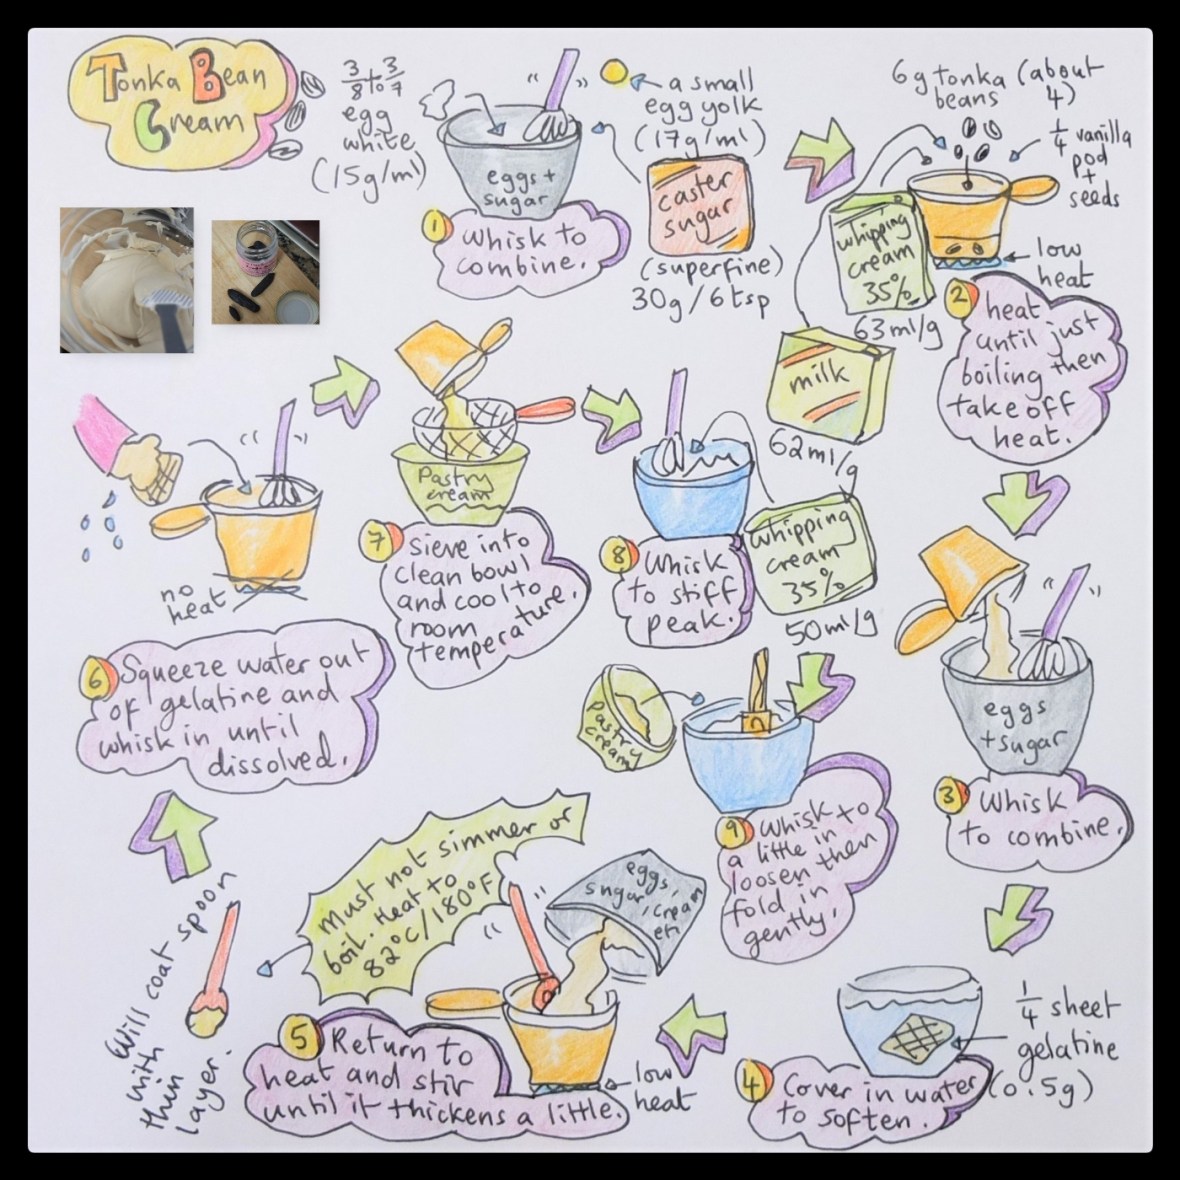 Tonka Bean
Cream
3/8 to 3/7
egg
white
(15g/ml)
eggs +
sugar
a small
egg yolk
(17g/ml)
caster
sugar
(superfine)
30g/6tsp
1 Whisk to
combine.
6g tonka (about
beans 4)
1/4 vanilla
pod
+
seeds
whipping
cream
35%
63ml/g
milk
62ml/g
low
heat
2 heat
until just
boiling then
take off
heat.
eggs
+sugar
3 Whisk
to combine.
1/4 sheet
gelatine
(0.5g)
4 Cover in water
to soften.
eggs,
sugar, cream
etc
low
heat
5 Return to
heat and stir
until it thickens a little.
Must not simmer or
boil. Heat to
82°C/180°F
Will coat spoon
with
thin
layer.
no
heat
6 Squeeze water out
of gelatine and
whisk in until
dissolved.
Pastry
cream
7 Sieve into
clean bowl
and cool to
room
temperature.
8 Whisk
to stiff
peak.
whipping
cream
35%
50ml/g
pastry
cream
9 Whisk to
a little in
loosen then
fold in
gently.